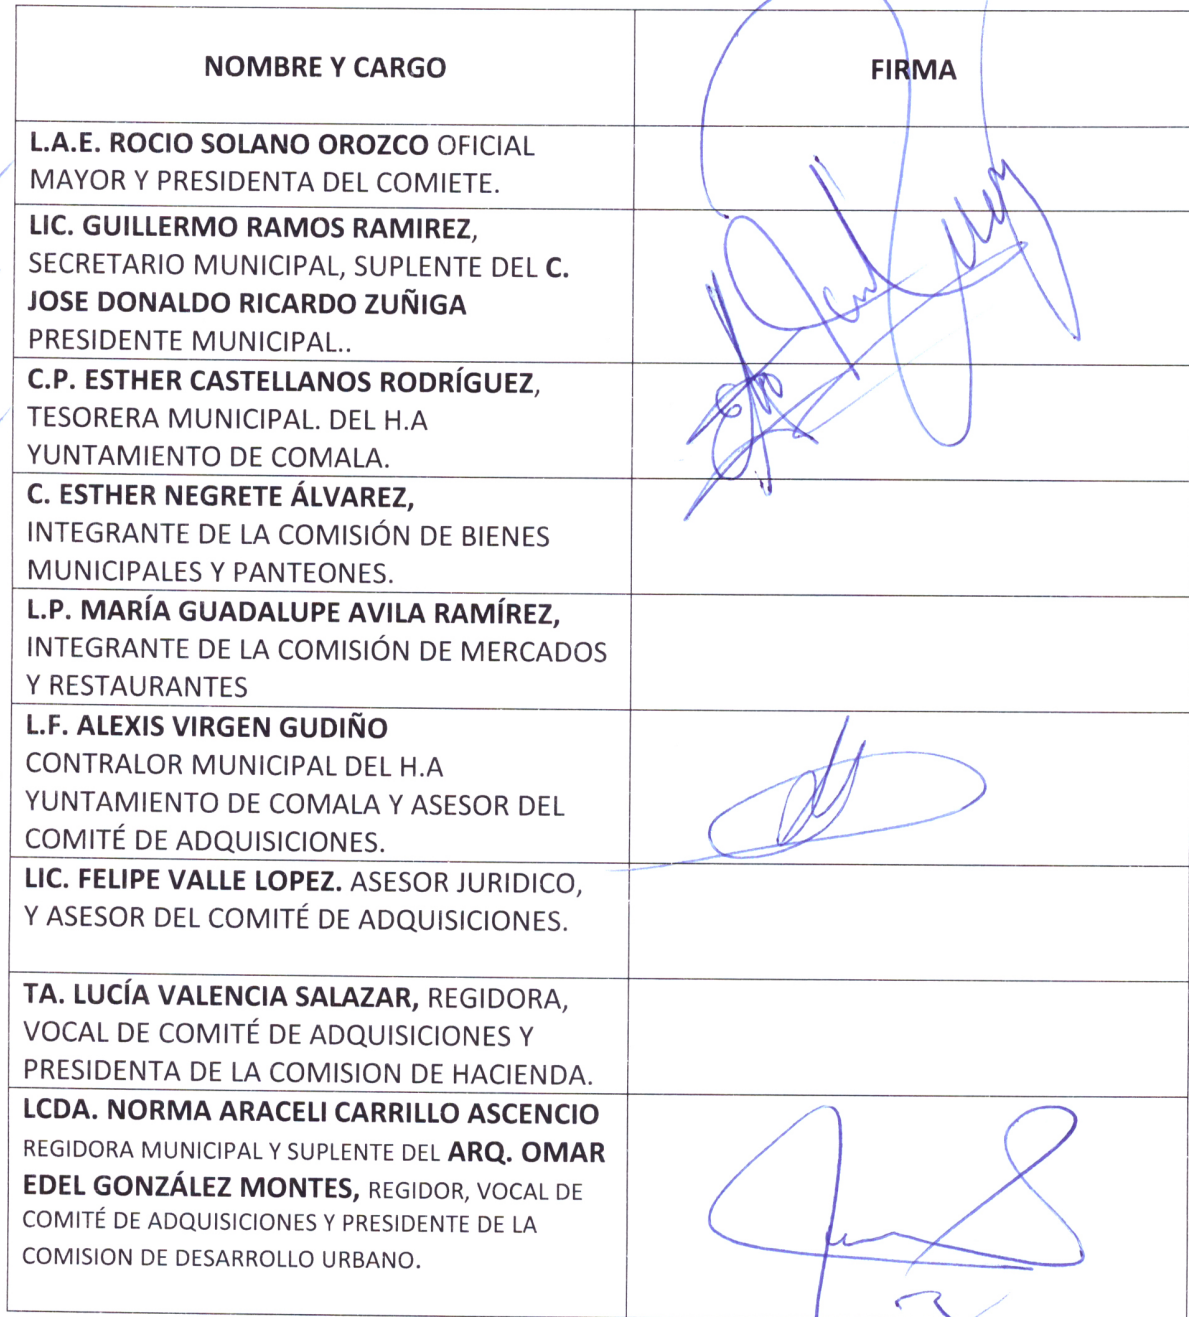 NOMBRE Y CARGO
FIRMA
L.A.E. ROCIO SOLANO OROZCO OFICIAL
MAYOR Y PRESIDENTA DEL COMIETE.
LIC. GUILLERMO RAMOS RAMIREZ,
SECRETARIO MUNICIPAL, SUPLENTE DEL C.
JOSE DONALDO RICARDO ZUÑIGA
PRESIDENTE MUNICIPAL..
C.P. ESTHER CASTELLANOS RODRÍGUEZ,
TESORERA MUNICIPAL. DEL H.A
YUNTAMIENTO DE COMALA.
C. ESTHER NEGRETE ÁLVAREZ,
INTEGRANTE DE LA COMISIÓN DE BIENES
MUNICIPALES Y PANTEONES.
L.P. MARÍA GUADALUPE AVILA RAMÍREZ,
INTEGRANTE DE LA COMISIÓN DE MERCADOS
Y RESTAURANTES
L.F. ALEXIS VIRGEN GUDIÑO
CONTRALOR MUNICIPAL DEL H.A
YUNTAMIENTO DE COMALA Y ASESOR DEL
COMITÉ DE ADQUISICIONES.
LIC. FELIPE VALLE LOPEZ. ASESOR JURIDICO,
Y ASESOR DEL COMITÉ DE ADQUISICIONES.
TA. LUCÍA VALENCIA SALAZAR, REGIDORA,
VOCAL DE COMITÉ DE ADQUISICIONES Y
PRESIDENTA DE LA COMISION DE HACIENDA.
LCDA. NORMA ARACELI CARRILLO ASCENCIO
REGIDORA MUNICIPAL Y SUPLENTE DEL ARQ. OMAR
EDEL GONZÁLEZ MONTES, REGIDOR, VOCAL DE
COMITÉ DE ADQUISICIONES Y PRESIDENTE DE LA
COMISION DE DESARROLLO URBANO.